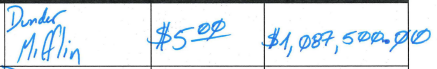 Dunder
Mifflin
$5.00
$1,087,500.00